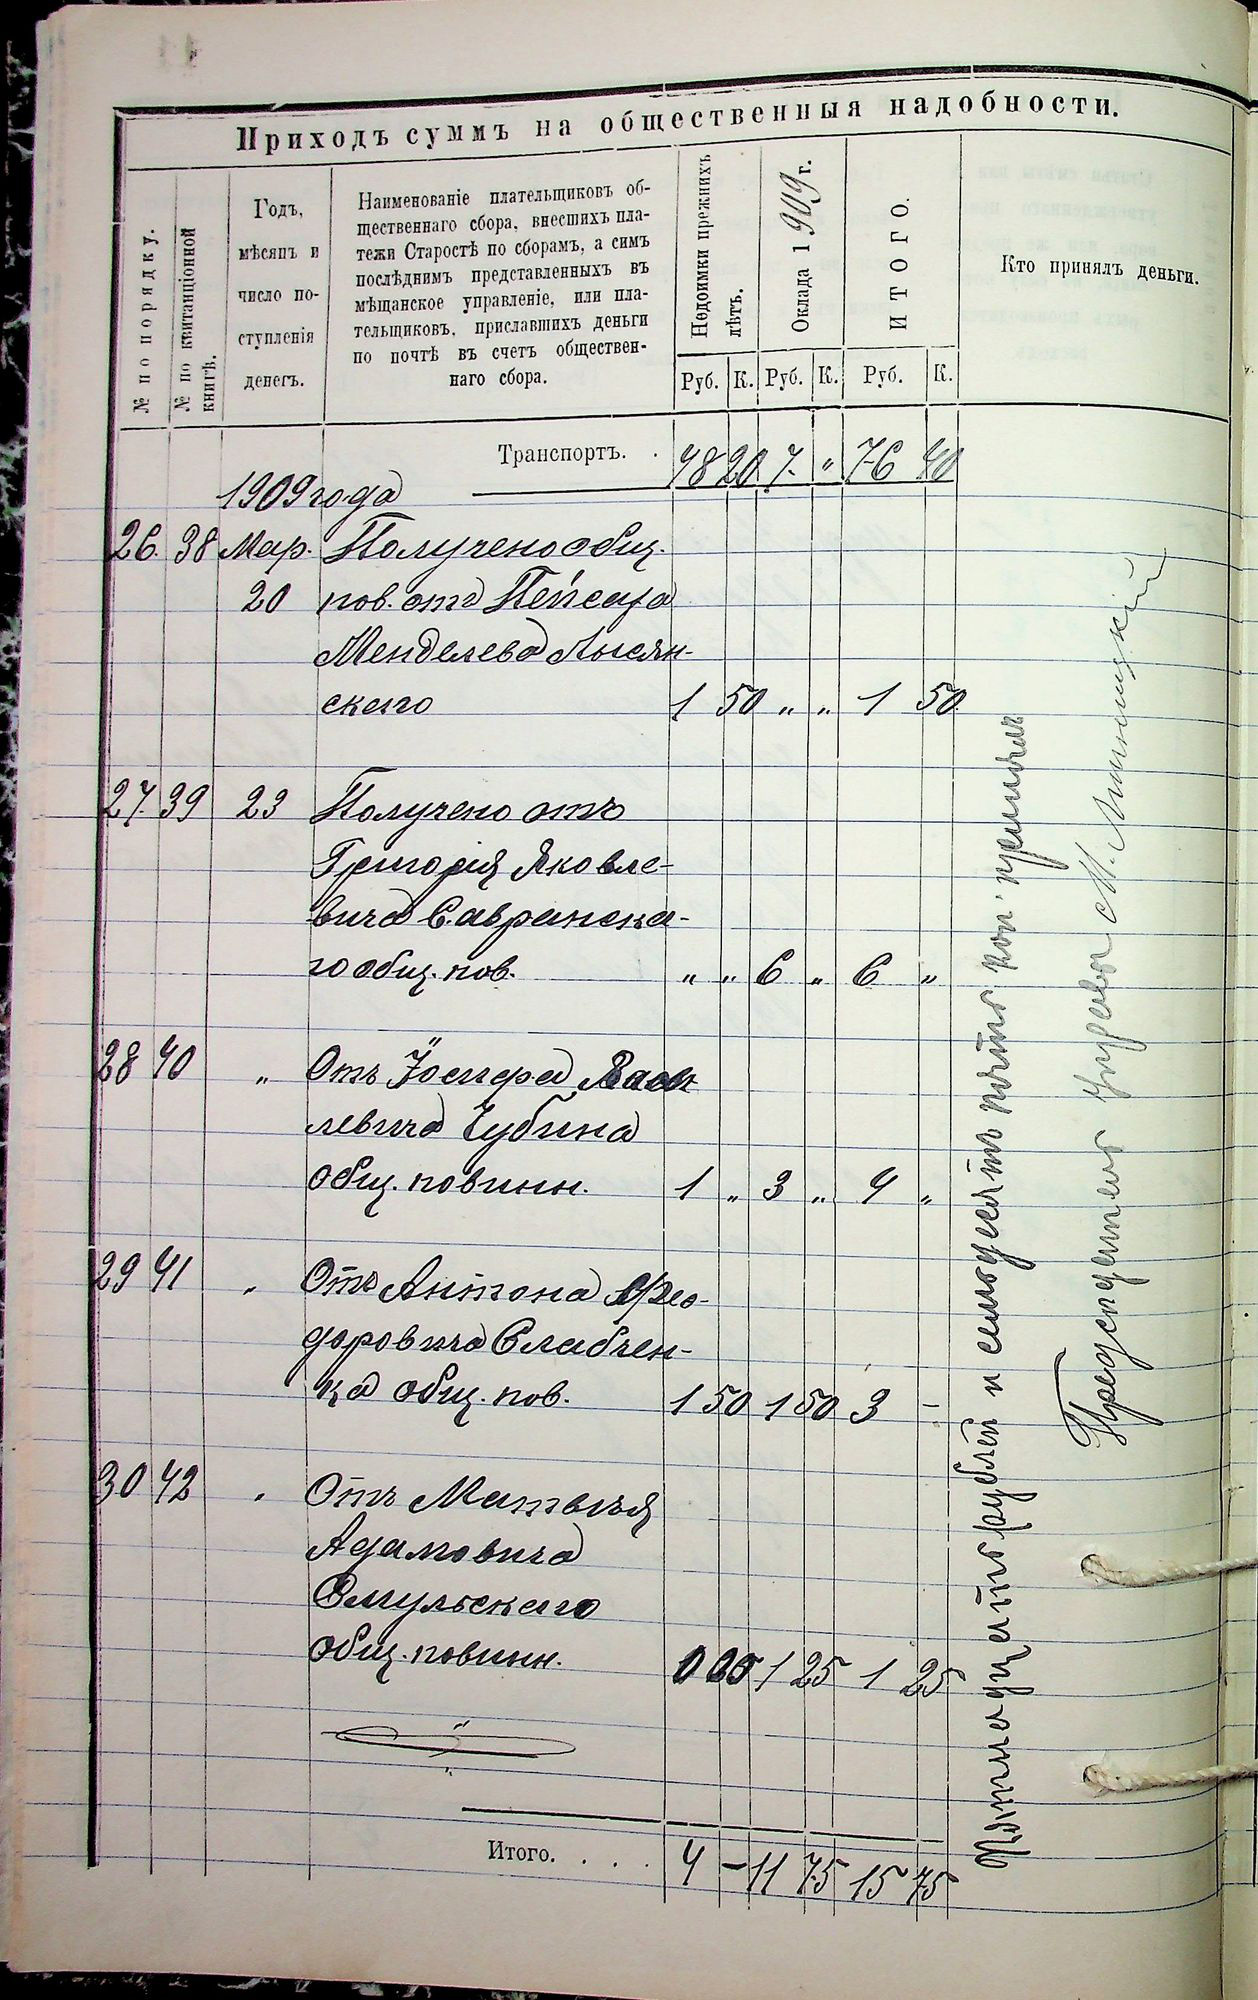 Приходъ суммъ на общественныя надобности.
№ по порядку.
№ по квитанціонной
книгѣ.
Годъ,
мѣсяцъ и
число по-
ступленія
денегъ.
Наименованіе плательщиковъ об-
щественнаго сбора, внесшихъ пла-
тежи Старостѣ по сборамъ, а симъ
послѣднимъ представленныхъ въ
мѣщанское управленіе, или пла-
тельщиковъ, приславшихъ деньги
по почтѣ въ счетъ обществен-
наго сбора.
Недоимки прежнихъ
лѣтъ.
Оклада 1909 г.
ИТОГО.
Кто принялъ деньги.
Руб. К. Руб. К. Руб. К.
Транспортъ. . 48 20 7. " 76 40
1909 года
26. 38 Мар. Получено общ.
20 пов. отъ Пейсаха
Менделева Лысян-
скаго 1 50 " " 1 50
27. 39 23 Получено отъ
Григорія Яковле-
вича Савранска-
го общ. пов. " " 6 " 6 "
28 40 " Отъ Іосифа
левича Чубина
общ. повинн. 1 " 3 " 4 "
29 41 " Отъ Антона Фео-
доровича Слабчен-
ка общ. пов. 1 50 1 50 3 –
30 42 " Отъ Матвѣя
Адамовича
Смульскаго
общ. повинн. 1 25 1 25
Итого. . . . 4 – 11 75 15 75
Пятнадцать рублей и семьдесятъ пять коп. принялъ
Предсѣдатель Управы М. Липницкій